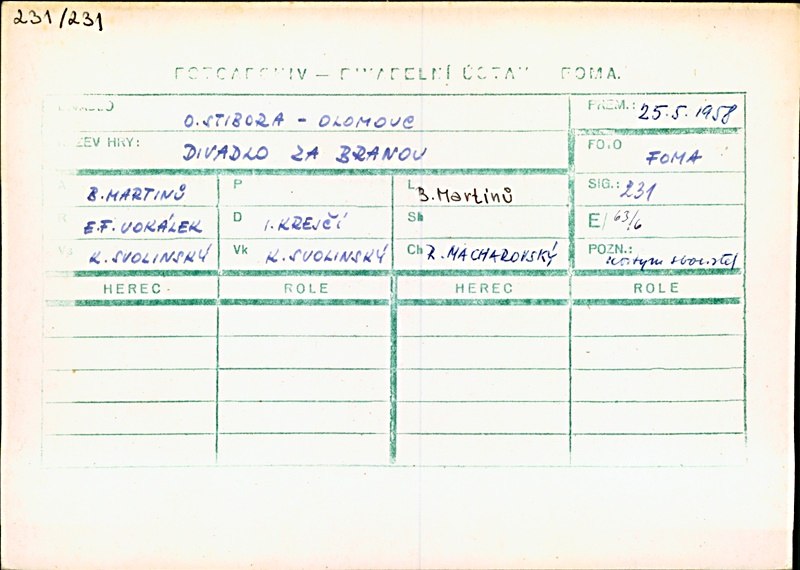 231/231
FOTOARCHIV — DIVADELNÍ ÚSTAV FOMA.
DIVADLO O.STIBORA - OLOMOUC PREM.: 25.5.1958
NÁZEV HRY: DIVADLO ZA BRANOU FOTO FOMA
A B.MARTINŮ P L B.Martinů SIG.: 231
R E.F. VOKÁLEK D I.KREJČÍ Sb E/63/6
Vs K.SVOLINSKÝ Vk K.SVOLINSKÝ Ch R.MACHAROVSKÝ POZN.:
HEREC ROLE HEREC ROLE